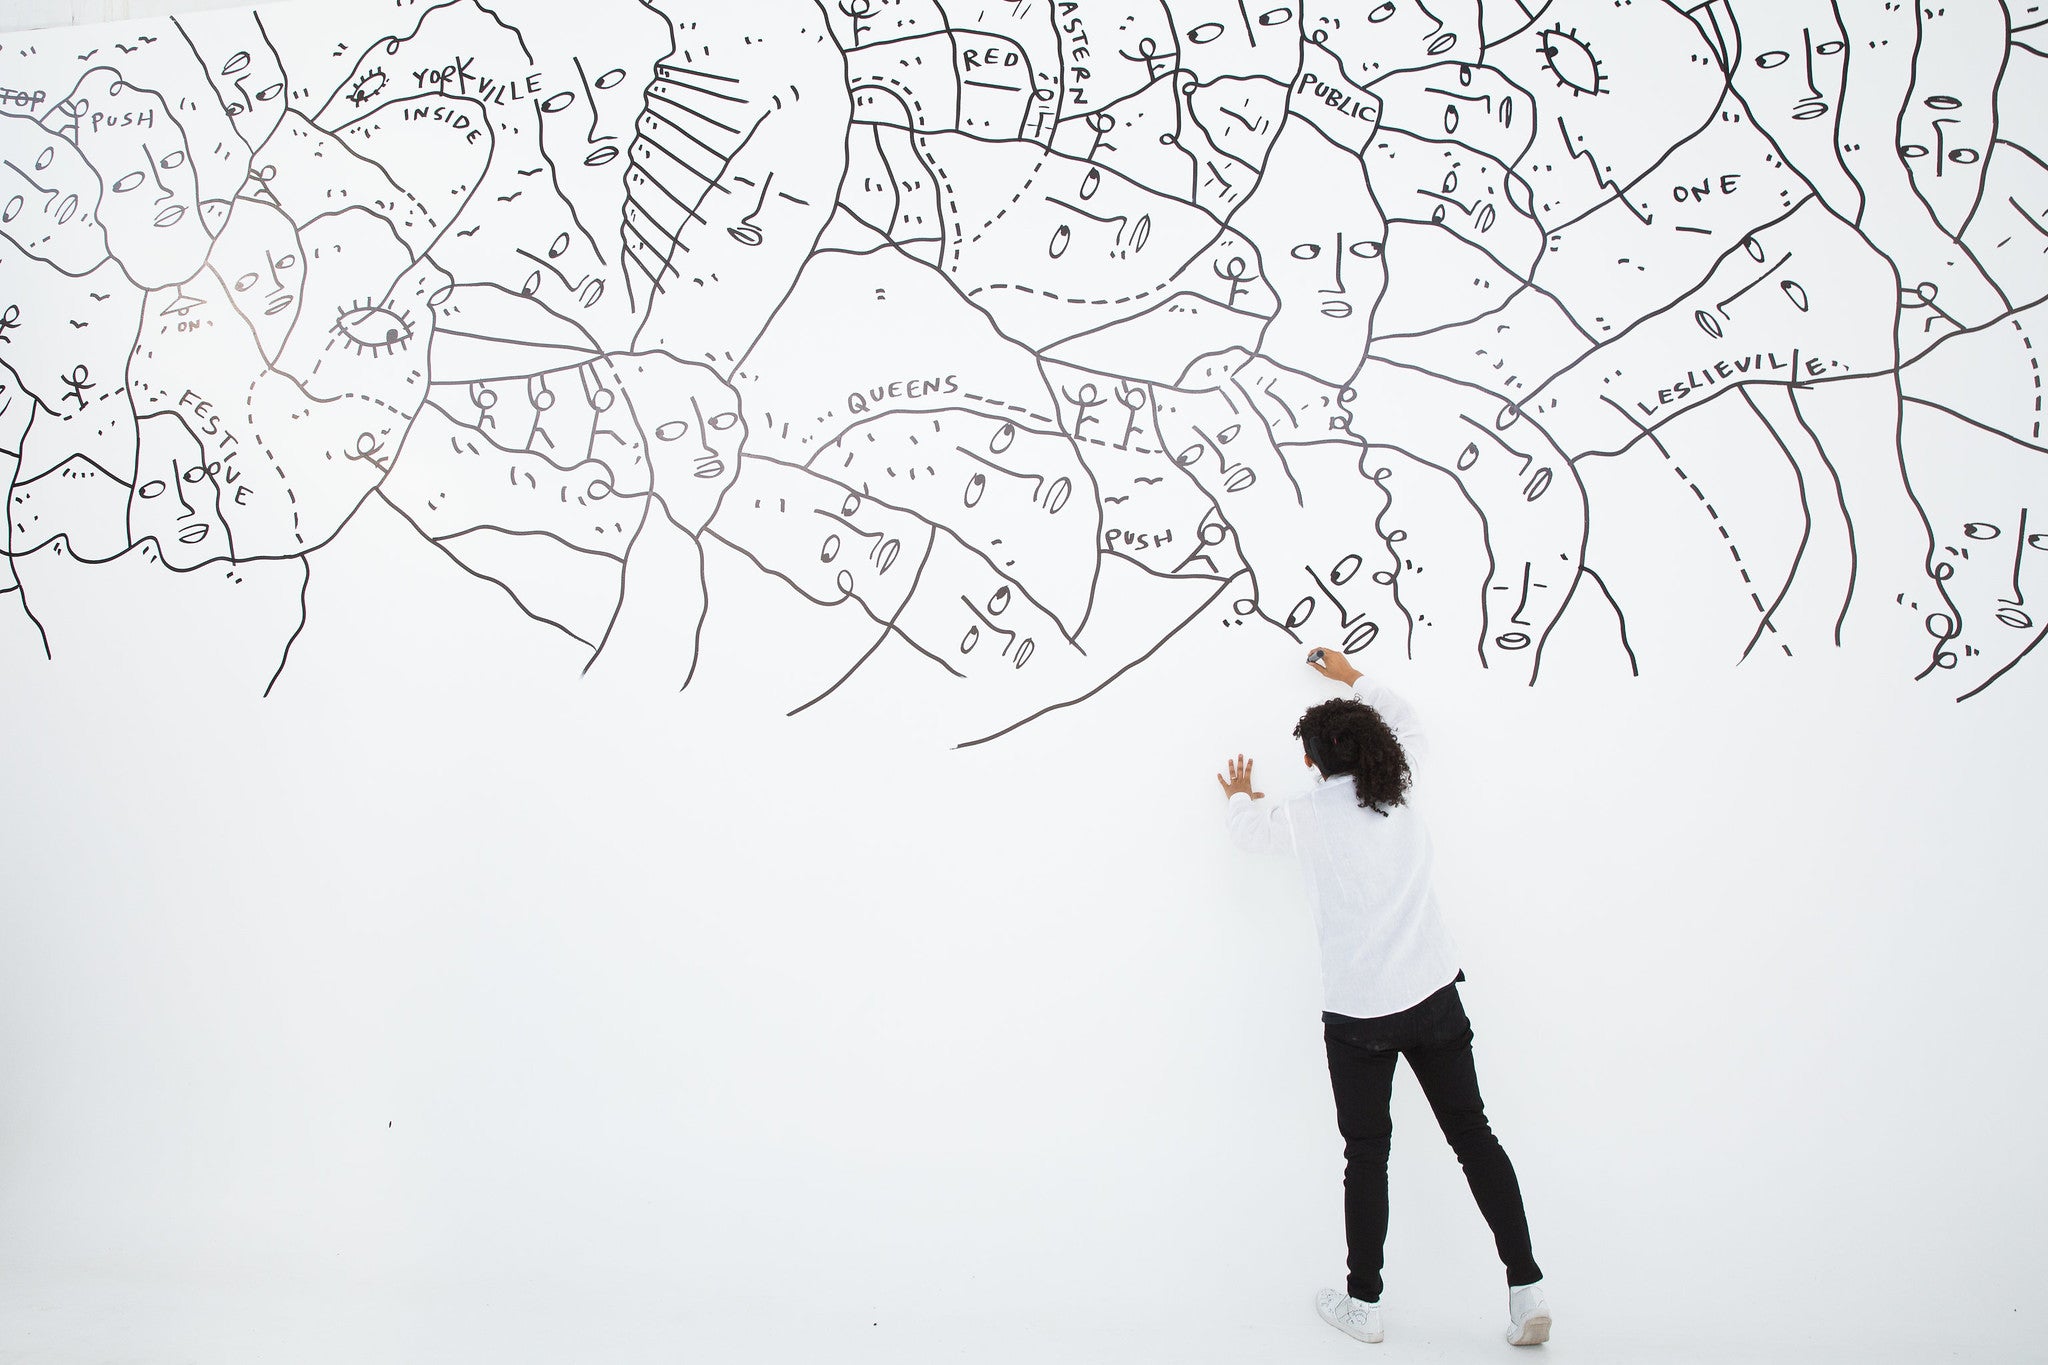 TOP
PUSH
YORKVILLE
INSIDE
RED
ASTERN
PUBLIC
ONE
ON
FESTIVE
QUEENS
LESLIEVILLE
PUSH